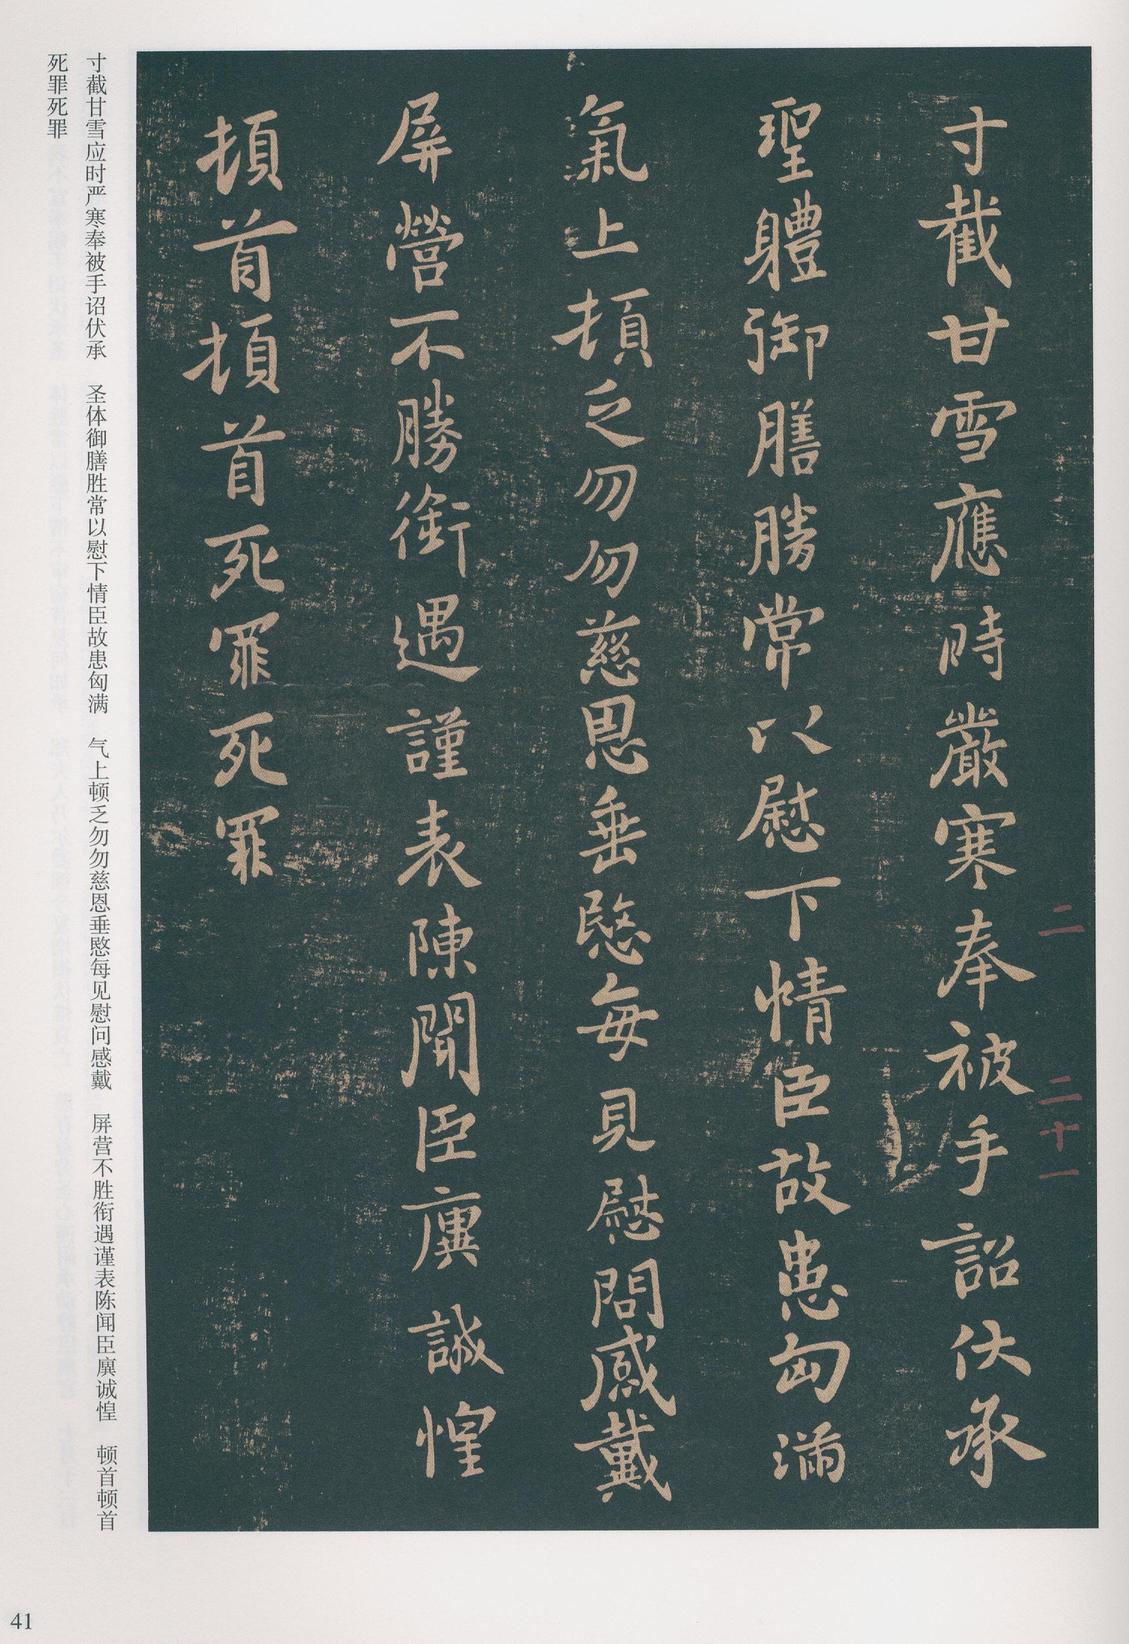 寸截甘雪應時嚴寒奉被手詔伏承
聖體御膳勝常以慰下情臣故患匈滿
氣上頓乏勿勿慈恩垂愍每見慰問感戴
屏營不勝銜遇謹表陳聞臣廙誠惶
頓首頓首死罪死罪
二 二十一
寸截甘雪应时严寒奉被手诏伏承 圣体御膳胜常以慰下情臣故患匈满 气上顿乏勿勿慈恩垂愍每见慰问感戴 屏营不胜衔遇谨表陈闻臣廙诚惶 顿首顿首
死罪死罪
41